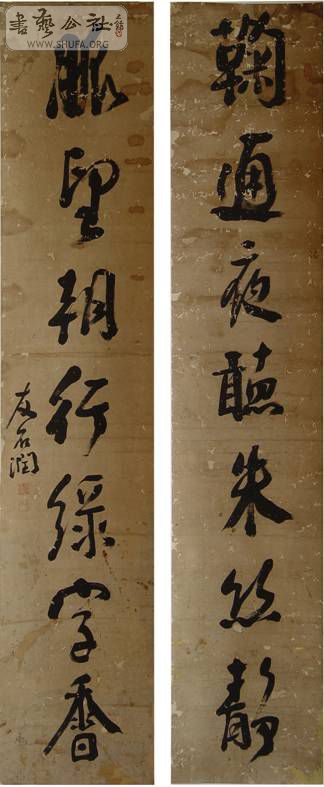 鞠通夜聽朱絲靜
脈望朝行綠字香
石潤
書藝公社
WWW.SHUFA.ORG